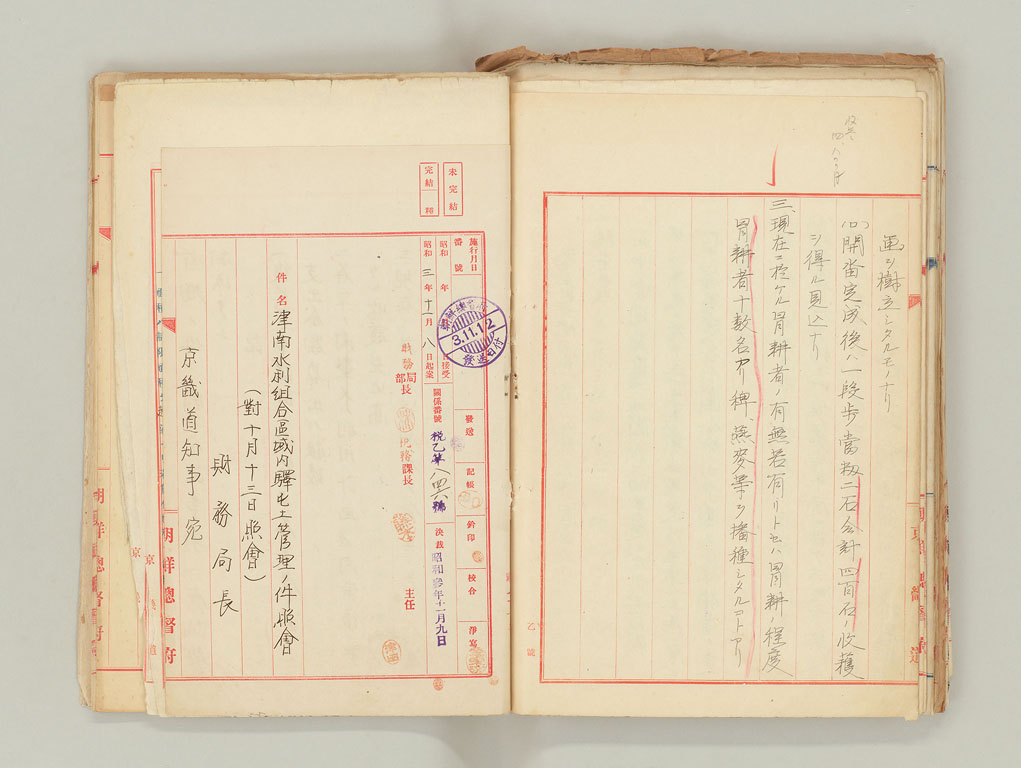 畫シ樹立シタルモノナリ
(ロ)開畓完成後ハ一段歩當籾二石合計四百石ノ收穫
シ得ル見込ナリ
三、現在ニ於ケル冒耕者ノ有無若有リトセハ冒耕ノ程度
冒耕者十數名アリ稗、燕麥等ヲ播種シタルコトアリ
未完結
完結
施行月日
番號
發送
記帳
鈐印
校合
淨寫
昭和 年 月 日接受
昭和三年十一月八日起案
關係番號
稅乙第八四六號
決裁
昭和參年十一月九日
3.11.12
發送日付
財務局長
部
稅務課長
主任
件名
津南水利組合區域內驛屯土管理ノ件照會
(對十月十三日照會)
財務局長
京畿道知事宛
朝鮮總督府